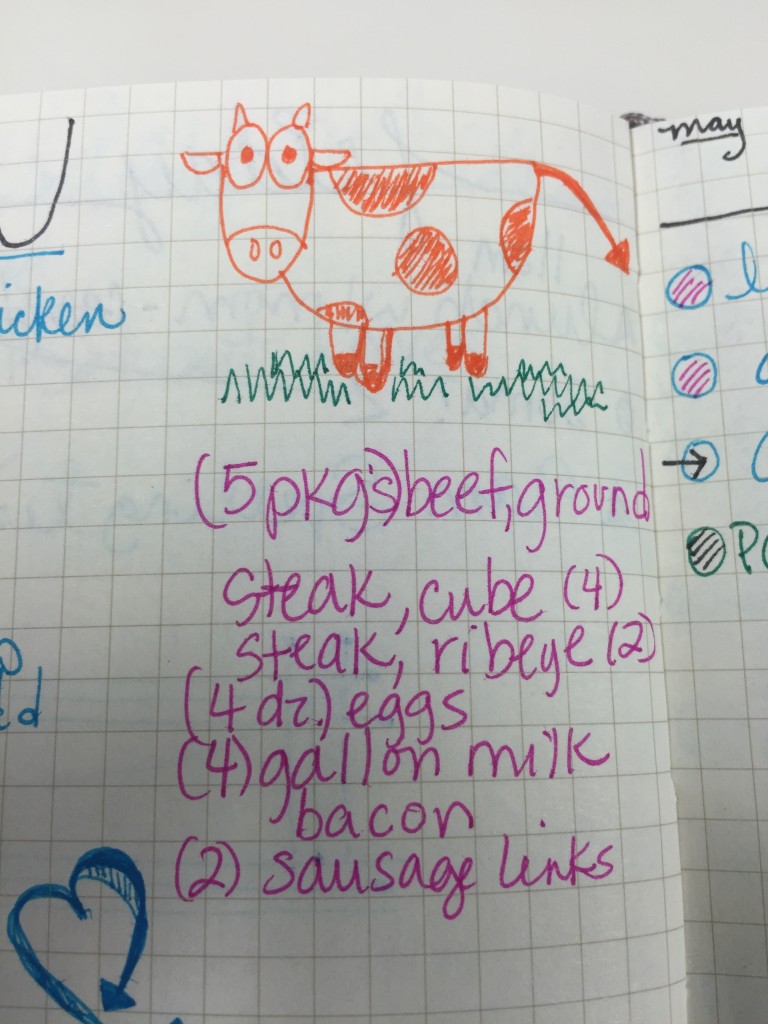 may
icken
(5 pkg's) beef, ground
steak, cube (4)
steak, ribeye (2)
(4 dz.) eggs
(4) gallon milk
bacon
(2) sausage links